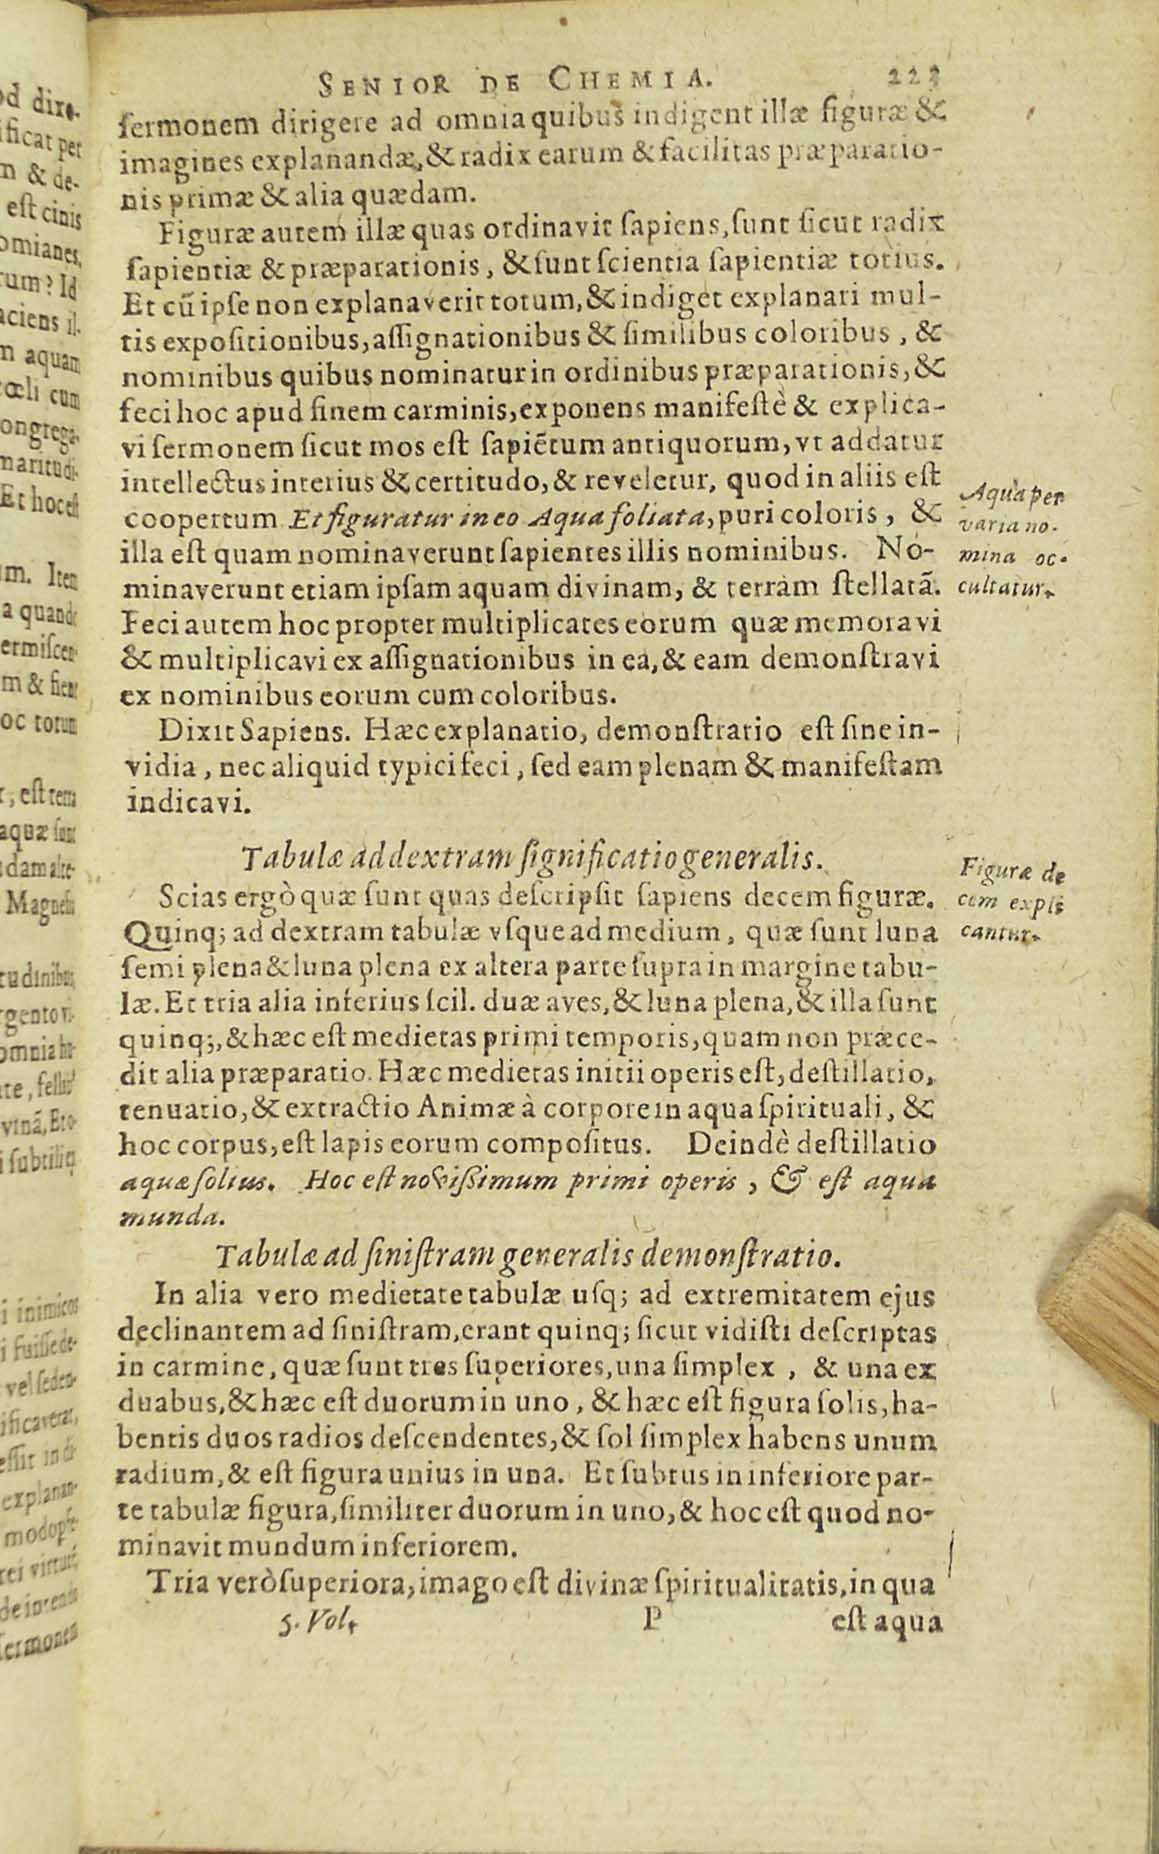 SENIOR DE CHEMIA. 223
sermonem dirigere ad omnia quibus indigent illæ figuræ &
imagines explanandæ, & radix earum & facilitas præparatio-
nis primæ & alia quædam.
Figuræ autem illæ quas ordinavit sapiens, sunt sicut radix
sapientiæ & præparationis, & sunt scientia sapientiæ totius.
Et cũ ipse non explanaverit totum, & indiget explanari mul-
tis expositionibus, assignationibus & similibus coloribus, &
nominibus quibus nominatur in ordinibus præparationis, &
feci hoc apud finem carminis, exponens manifestè & explica-
vi sermonem sicut mos est sapiẽtum antiquorum, vt addatur
intellectus interius & certitudo, & reveletur, quod in aliis est
coopertum. Et figuratur in eo Aqua foliata, puri coloris, &
illa est quam nominaverunt sapientes illis nominibus. No-
minaverunt etiam ipsam aquam divinam, & terram stellatã.
Feci autem hoc propter multiplicates eorum quæ memoravi
& multiplicavi ex assignationibus in ea, & eam demonstravi
ex nominibus eorum cum coloribus.
Aqua per
varia no-
mina oc-
cultatur.
Dixit Sapiens. Hæc explanatio, demonstratio est sine in-
vidia, nec aliquid typici feci, sed eam plenam & manifestam
indicavi.
Tabulæ ad dextram significatio generalis.
Scias ergò quæ sunt quas descripsit sapiens decem figuræ.
Quinq; ad dextram tabulæ vsque ad medium, quæ sunt luna
semi plena & luna plena ex altera parte supra in margine tabu-
læ. Et tria alia inferius scil. duæ aves, & luna plena, & illa sunt
quinq;, & hæc est medietas primi temporis, quam non præce-
dit alia præparatio. Hæc medietas initii operis est, destillatio,
tenuatio, & extractio Animæ à corpore in aqua spirituali, &
hoc corpus, est lapis eorum compositus. Deindè destillatio
aquæ solius. Hoc est novissimum primi operis, & est aqua
munda.
Figuræ de
cem expli
cantur.
Tabulæ ad sinistram generalis demonstratio.
In alia vero medietate tabulæ usq; ad extremitatem ejus
declinantem ad sinistram, erant quinq; sicut vidisti descriptas
in carmine, quæ sunt tres superiores, una simplex, & una ex
duabus, & hæc est duorum in uno, & hæc est figura solis, ha-
bentis duos radios descendentes, & sol simplex habens unum
radium, & est figura unius in una. Et subtus in inferiore par-
te tabulæ figura, similiter duorum in uno, & hoc est quod no-
minavit mundum inferiorem.
Tria verò superiora, imago est divinæ spiritualitatis, in qua
5. Vol. P est aqua